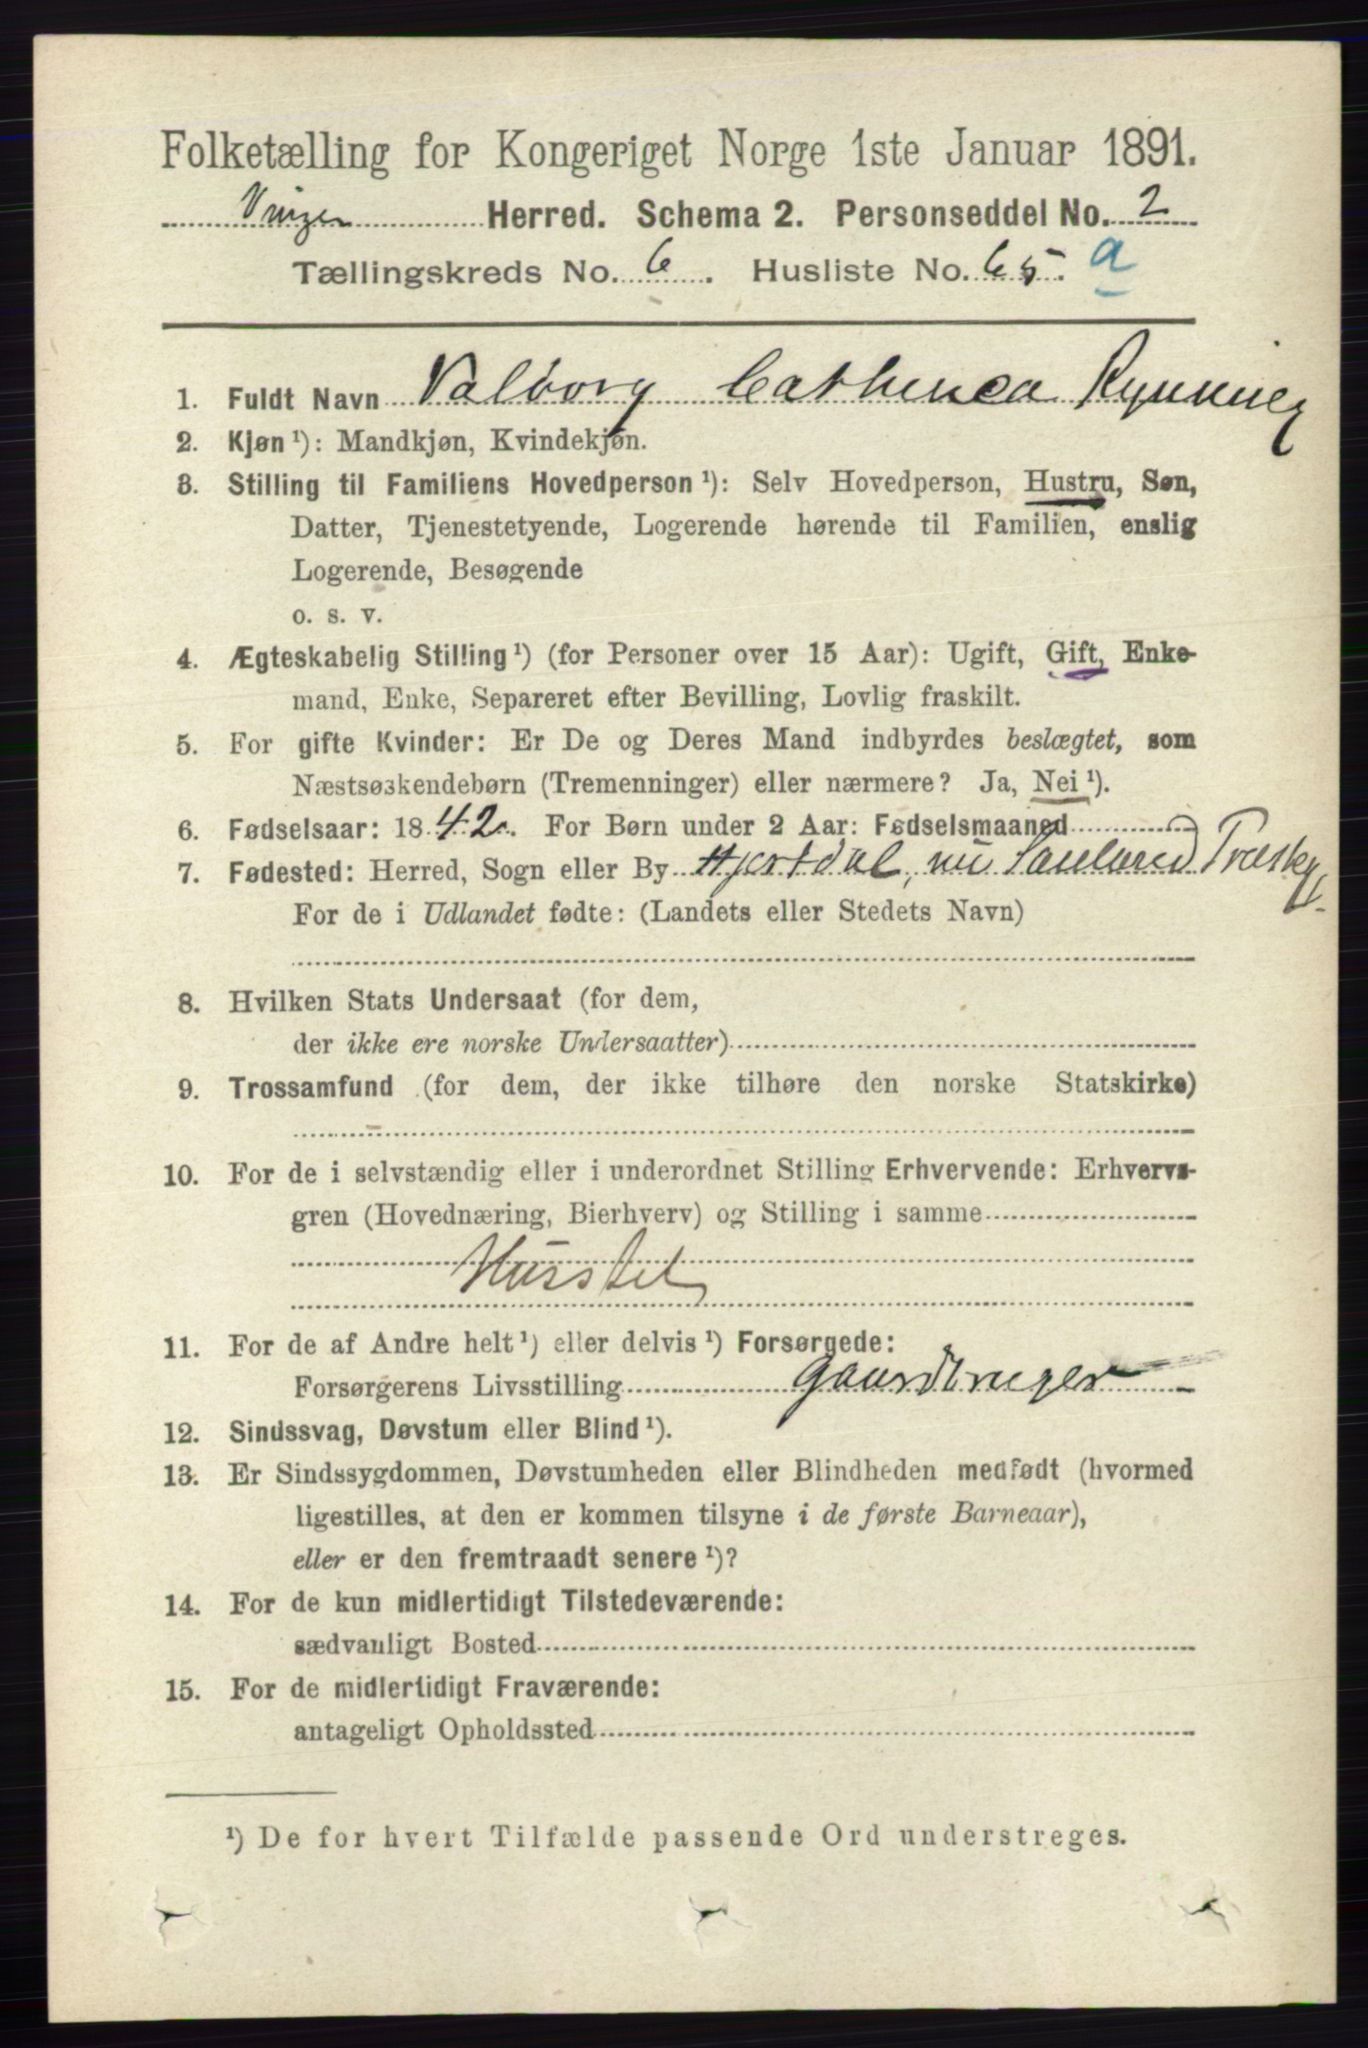 Folketælling for Kongeriget Norge 1ste Januar 1891.
Vinger Herred. Schema 2. Personseddel No. 2
Tællingskreds No. 6. Husliste No. 65. a
1. Fuldt Navn Valborg Cathinca Rynning
2. Kjøn ¹): Mandkjøn, Kvindekjøn.
3. Stilling til Familiens Hovedperson ¹): Selv Hovedperson, Hustru, Søn,
Datter, Tjenestetyende, Logerende hørende til Familien, enslig
Logerende, Besøgende
o. s. v.
4. Ægteskabelig Stilling ¹) (for Personer over 15 Aar): Ugift, Gift, Enke-
mand, Enke, Separeret efter Bevilling, Lovlig fraskilt.
5. For gifte Kvinder: Er De og Deres Mand indbyrdes beslægtet, som
Næstsøskendebørn (Tremenninger) eller nærmere? Ja, Nei ¹).
6. Fødselsaar: 1842. For Børn under 2 Aar: Fødselsmaaned
7. Fødested: Herred, Sogn eller By Hjertdal, nu Sauland Præstegj.
For de i Udlandet fødte: (Landets eller Stedets Navn)
8. Hvilken Stats Undersaat (for dem,
der ikke ere norske Undersaatter)
9. Trossamfund (for dem, der ikke tilhøre den norske Statskirke)
10. For de i selvstændig eller i underordnet Stilling Erhvervende: Erhvervs-
gren (Hovednæring, Bierhverv) og Stilling i samme
Husstel
11. For de af Andre helt ¹) eller delvis ¹) Forsørgede:
Forsørgerens Livsstilling Gaardbruger
12. Sindssvag, Døvstum eller Blind ¹).
13. Er Sindssygdommen, Døvstumheden eller Blindheden medfødt (hvormed
ligestilles, at den er kommen tilsyne i de første Barneaar),
eller er den fremtraadt senere ¹)?
14. For de kun midlertidigt Tilstedeværende:
sædvanligt Bosted
15. For de midlertidigt Fraværende:
antageligt Opholdssted
¹) De for hvert Tilfælde passende Ord understreges.